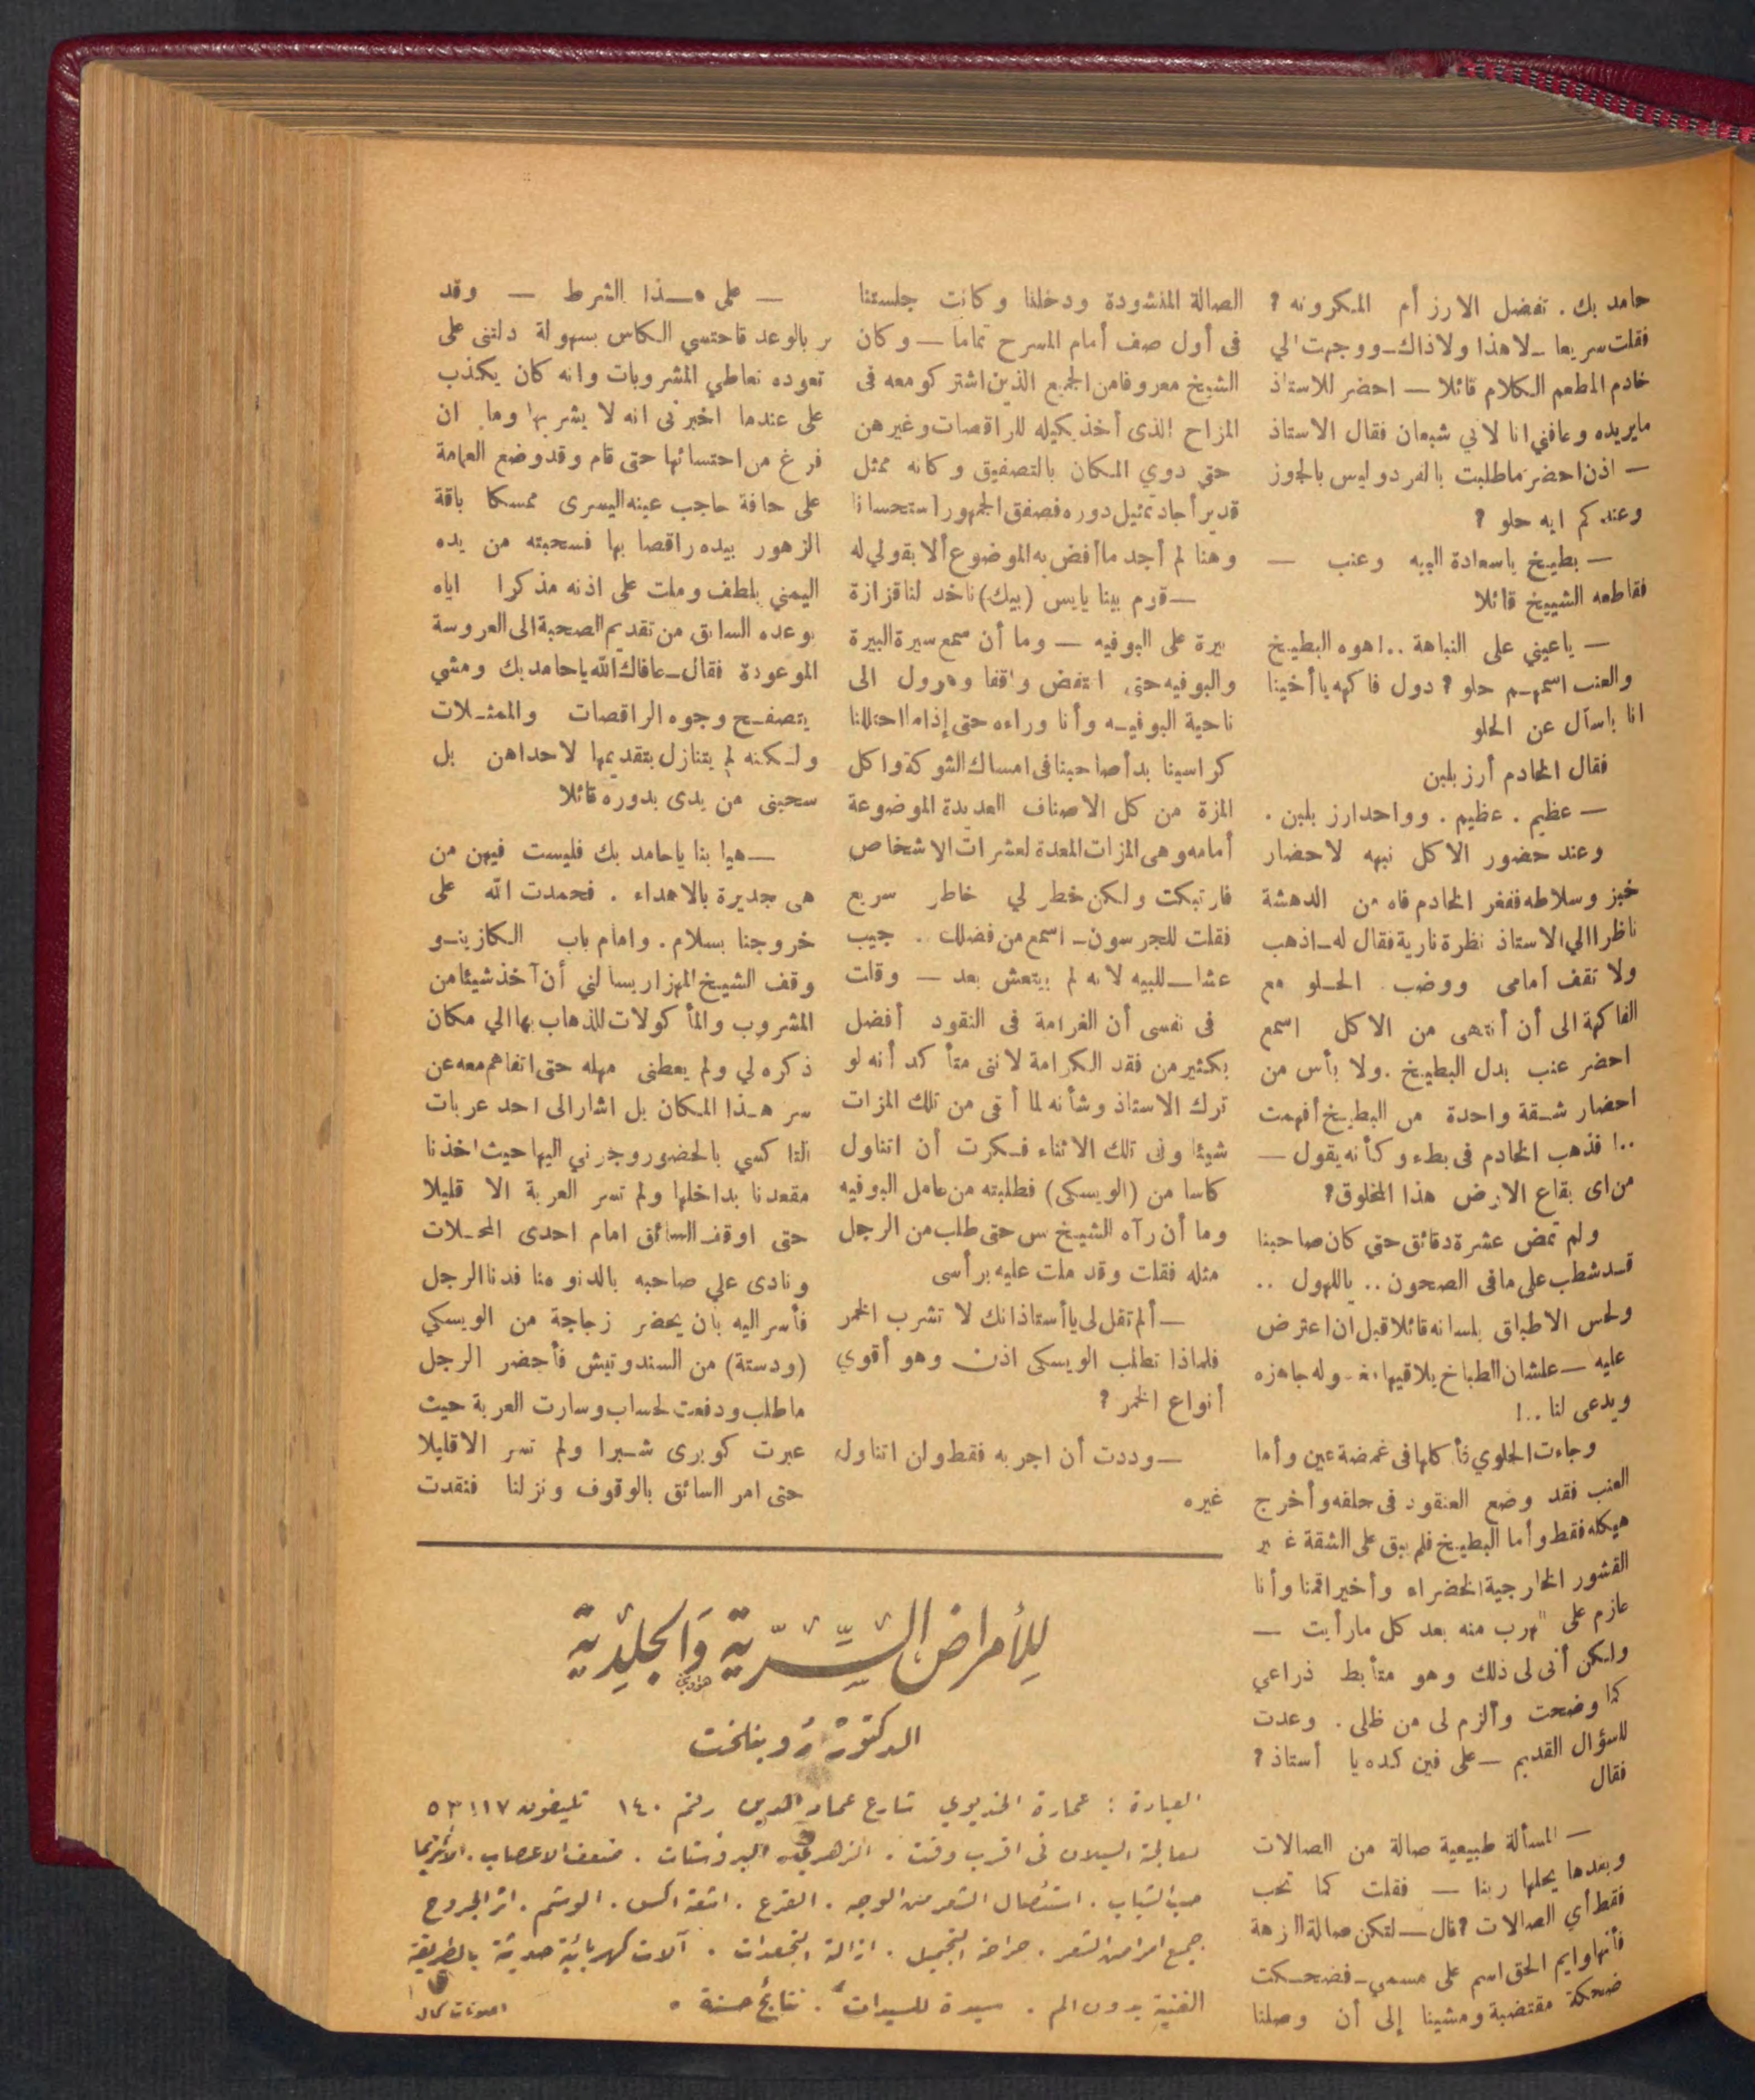 حامد بك . تفضل الارز أم المكرونه ؟
فقلت سريعا ـ لا هذا ولا ذاك ـ ووجهت الي
خادم المطعم الكلام قائلا — احضر للاستاذ
مايريده وعافني انا لاني شبعان فقال الاستاذ
— اذن احضر ماطلبت بالفرد وليس بالجوز
وعندكم ايه حلو ؟
— بطيخ ياسعادة البيه وعنب —
فقاطعه الشييخ قائلا
— ياعيني على النباهة ..! هوه البطيخ
والعنب اسمهم حلو ؟ دول فاكهه ياأخينا
انا باسأل عن الحلو
فقال الخادم أرز بلبن
— عظيم . عظيم . وواحد ارز بلبن .
وعند حضور الاكل نبهه لاحضار
خبز وسلاطه ففغر الخادم فاه من الدهشة
ناظرا الي الاستاذ نظرة نارية فقال له ـ اذهب
ولا تقف أمامى ووضب الحلو مع
الفاكهة الى أن أنتهى من الاكل اسمع
احضر عنب بدل البطيخ . ولا بأس من
احضار شقة واحدة من البطيخ أفهمت
..! فذهب الخادم فى بطء وكأنه يقول —
من اى بقاع الارض هذا المخلوق ؟
ولم تمض عشرة دقائق حتي كان صاحبنا
قد شطب على مافى الصحون .. ياللهول ..
ولحس الاطباق بلسانه قائلا قبل ان اعترض
عليه — علشان الطباخ يلاقيها مغسوله جاهزه
ويدعى لنا ..!
وجاءت الحلوي فأكلها فى غمضة عين وأما
العنب فقد وضع العنقود فى حلقه وأخرج
هيكله فقط وأما البطيخ فلم يبق على الشقة غير
القشور الخارجية الخضراء وأخيرا قمنا وأنا
عازم على الهرب منه بعد كل مارأيت —
ولكن أنى لى ذلك وهو متأبط ذراعي
كما وضحت وألزم لى من ظلى . وعدت
للسؤال القديم — على فين كده يا أستاذ ؟
فقال
— المسألة طبيعية صالة من الصالات
وبعدها يحلها ربنا — فقلت كما تحب
فقط أي الصالات ؟ قال — لتكن صالة الزهة
فأنها وايم الحق اسم على مسمي ـ فضحكت
ضحكة مقتضبة ومشينا إلى أن وصلنا
الصالة المنشودة ودخلنا وكانت جلستنا
فى أول صف أمام المسرح تماما — وكان
الشيخ معروفا من الجميع الذين اشتركو معه فى
المزاح الذى أخذ يكيله للراقصات وغيرهن
حتي دوي المكان بالتصفيق وكانه ممثل
قدير أجاد تمثيل دوره فصفق الجمهور استحسانا
وهنا لم أجد ما أفض به الموضوع ألا بقولي له
— قوم بينا يابس (بيك) ناخد لنا قزازة
بيرة على البوفيه — وما أن سمع سيرة البيرة
والبوفيه حتى انتفض واقفا وهرول الى
ناحية البوفيه وأنا وراءه حتى إذا ما احتللنا
كراسينا بدأ صاحبنا فى امساك الشوكة واكل
المزة من كل الاصناف العديدة الموضوعة
أمامه وهى المزات المعدة لعشرات الاشخاص
فارتبكت ولكن خطر لي خاطر سريع
فقلت للجرسون ـ اسمع من فضلك .. جيب
عشا ـ للبيه لانه لم بيتعش بعد — وقلت
فى نفسى أن الغرامة فى النقود أفضل
بكثير من فقد الكرامة لاننى متأكد أنه لو
ترك الاستاذ وشأنه لما أبقى من تلك المزات
شيئا وفى تلك الاثناء فكرت أن اتناول
كاسا من (الويسكى) فطلبته من عامل البوفيه
وما أن رآه الشيخ س حتى طلب من الرجل
مثله فقلت وقد ملت عليه برأسى
— ألم تقل لى ياأستاذ انك لا تشرب الخمر
فلماذا تطلب الويسكى اذن وهو أقوي
أنواع الخمر ؟
— وددت أن اجربه فقط ولن اتناول
غيره
— على هذا الشرط — وقد
بر بالوعد فاحتسي الكاس بسهولة دلتنى على
تعوده تعاطي المشروبات وانه كان يكذب
على عندما اخبرنى انه لا يشربها وما ان
فرغ من احتسائها حتى قام وقد وضع العمامة
على حافة حاجب عينه اليسرى ممسكا باقة
الزهور بيده راقصا بها فسحبته من يده
اليمني بلطف وملت على اذنه مذكرا اياه
بوعده السابق من تقديم الصحبة الى العروسة
الموعودة فقال ـ عافاك الله ياحامد بك ومشي
يتصفح وجوه الراقصات والممثلات
ولكنه لم يتنازل بتقديمها لاحداهن بل
سحبنى من يدى بدوره قائلا
— هيا بنا ياحامد بك فليست فيهن من
هى جديرة بالاهداء . فحمدت الله على
خروجنا بسلام . وامام باب الكازينو
وقف الشيخ المهزار يسألني أن آخذ شيئا من
المشروب والمأكولات للذهاب بها الي مكان
ذكره لي ولم يعطنى مهله حتى اتفاهم معه عن
سر هذا المكان بل اشار الى احد عربات
التاكسي بالحضور وجرني اليها حيث اخذنا
مقعدنا بداخلها ولم تسر العربة الا قليلا
حتى اوقف السائق امام احدى المحلات
ونادى علي صاحبه بالدنو منا فدنا الرجل
فأسر اليه بان يحضر زجاجة من الويسكي
(ودستة) من السندوتيش فأحضر الرجل
ماطلب ودفعت لحساب وسارت العربة حيث
عبرت كوبرى شبرا ولم تسر الاقليلا
حتى امر السائق بالوقوف ونزلنا فنقدت
للأمراض السِّرّية وَالجلِديّة
الدكتور روبنلخت
العيادة : عمارة الخديوي شارع عماد الدين رقم ١٤٠ تليفون
معالجة السيلان فى اقرب وقت . الزهري . البروستات . ضعف الاعصاب . الاكزيما
حب الشباب . استئصال الشعر من الوجه . القرع . اشعة اكس . الوشم . اثر الجروح
جميع امراض الشعر . جراحة التجميل . ازالة التجعدات . آلات كهربائية حديثة بالطريقة
الفنية بدون الم . سيدة للسيدات . نتائج حسنة .
اعلونات كمال